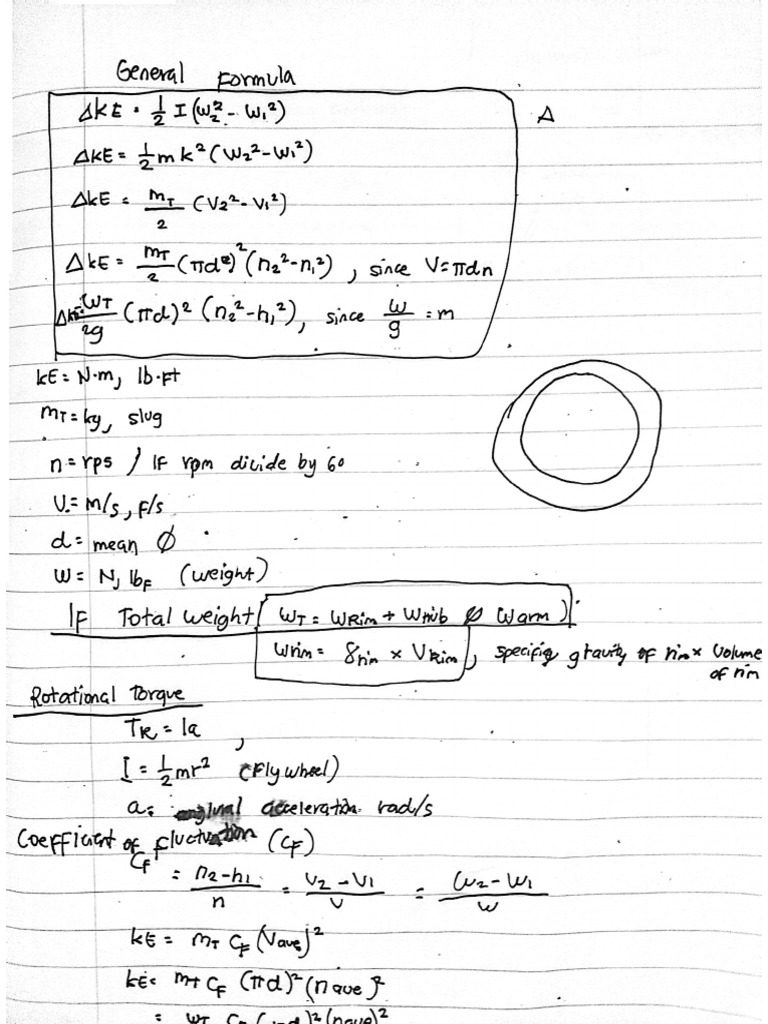 General Formula
ΔKE = 1/2 I (ω₂² - ω₁²)
Δ
ΔKE = 1/2 m k² (ω₂² - ω₁²)
ΔKE = m_T/2 (V₂² - V₁²)
ΔKE = m_T/2 (πd)² (n₂² - n₁²), since V = πdn
ΔKE = W_T/2g (πd)² (n₂² - n₁²), since W/g = m
KE = N·m, lb·ft
m_T = kg, slug
n = rps / IF rpm divide by 60
V = m/s, F/s
d = mean Ø
W = N, lb_F (weight)
IF Total weight (W_T = W_Rim + W_Hub & W_arm)
W_rim = 8_rim × V_Rim, specifig gravity of rim × Volume
of rim
Rotational Torque
T_R = Ia,
I = 1/2 mr² (Flywheel)
a = acceleration rad/s
Coefficient of fluctuation (C_F)
C_F = n₂ - n₁/n = V₂ - V₁/V = ω₂ - ω₁/ω
KE = m_T C_F (Vave)²
KE = m_T C_F (πd)² (nave)²
= W_T C_F (πd)² (nave)²